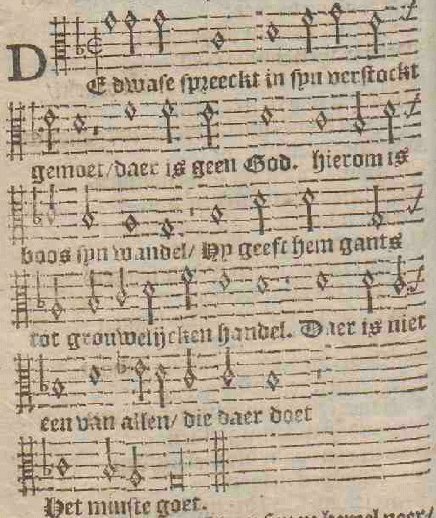 DE dwase spreeckt in syn verstockt
gemoet/daer is geen God. hierom is
boos syn wandel/ Hy geeft hem gants
tot grouwelijcken handel. Daer is niet
een van allen/ die daer doet
Het minste goet.